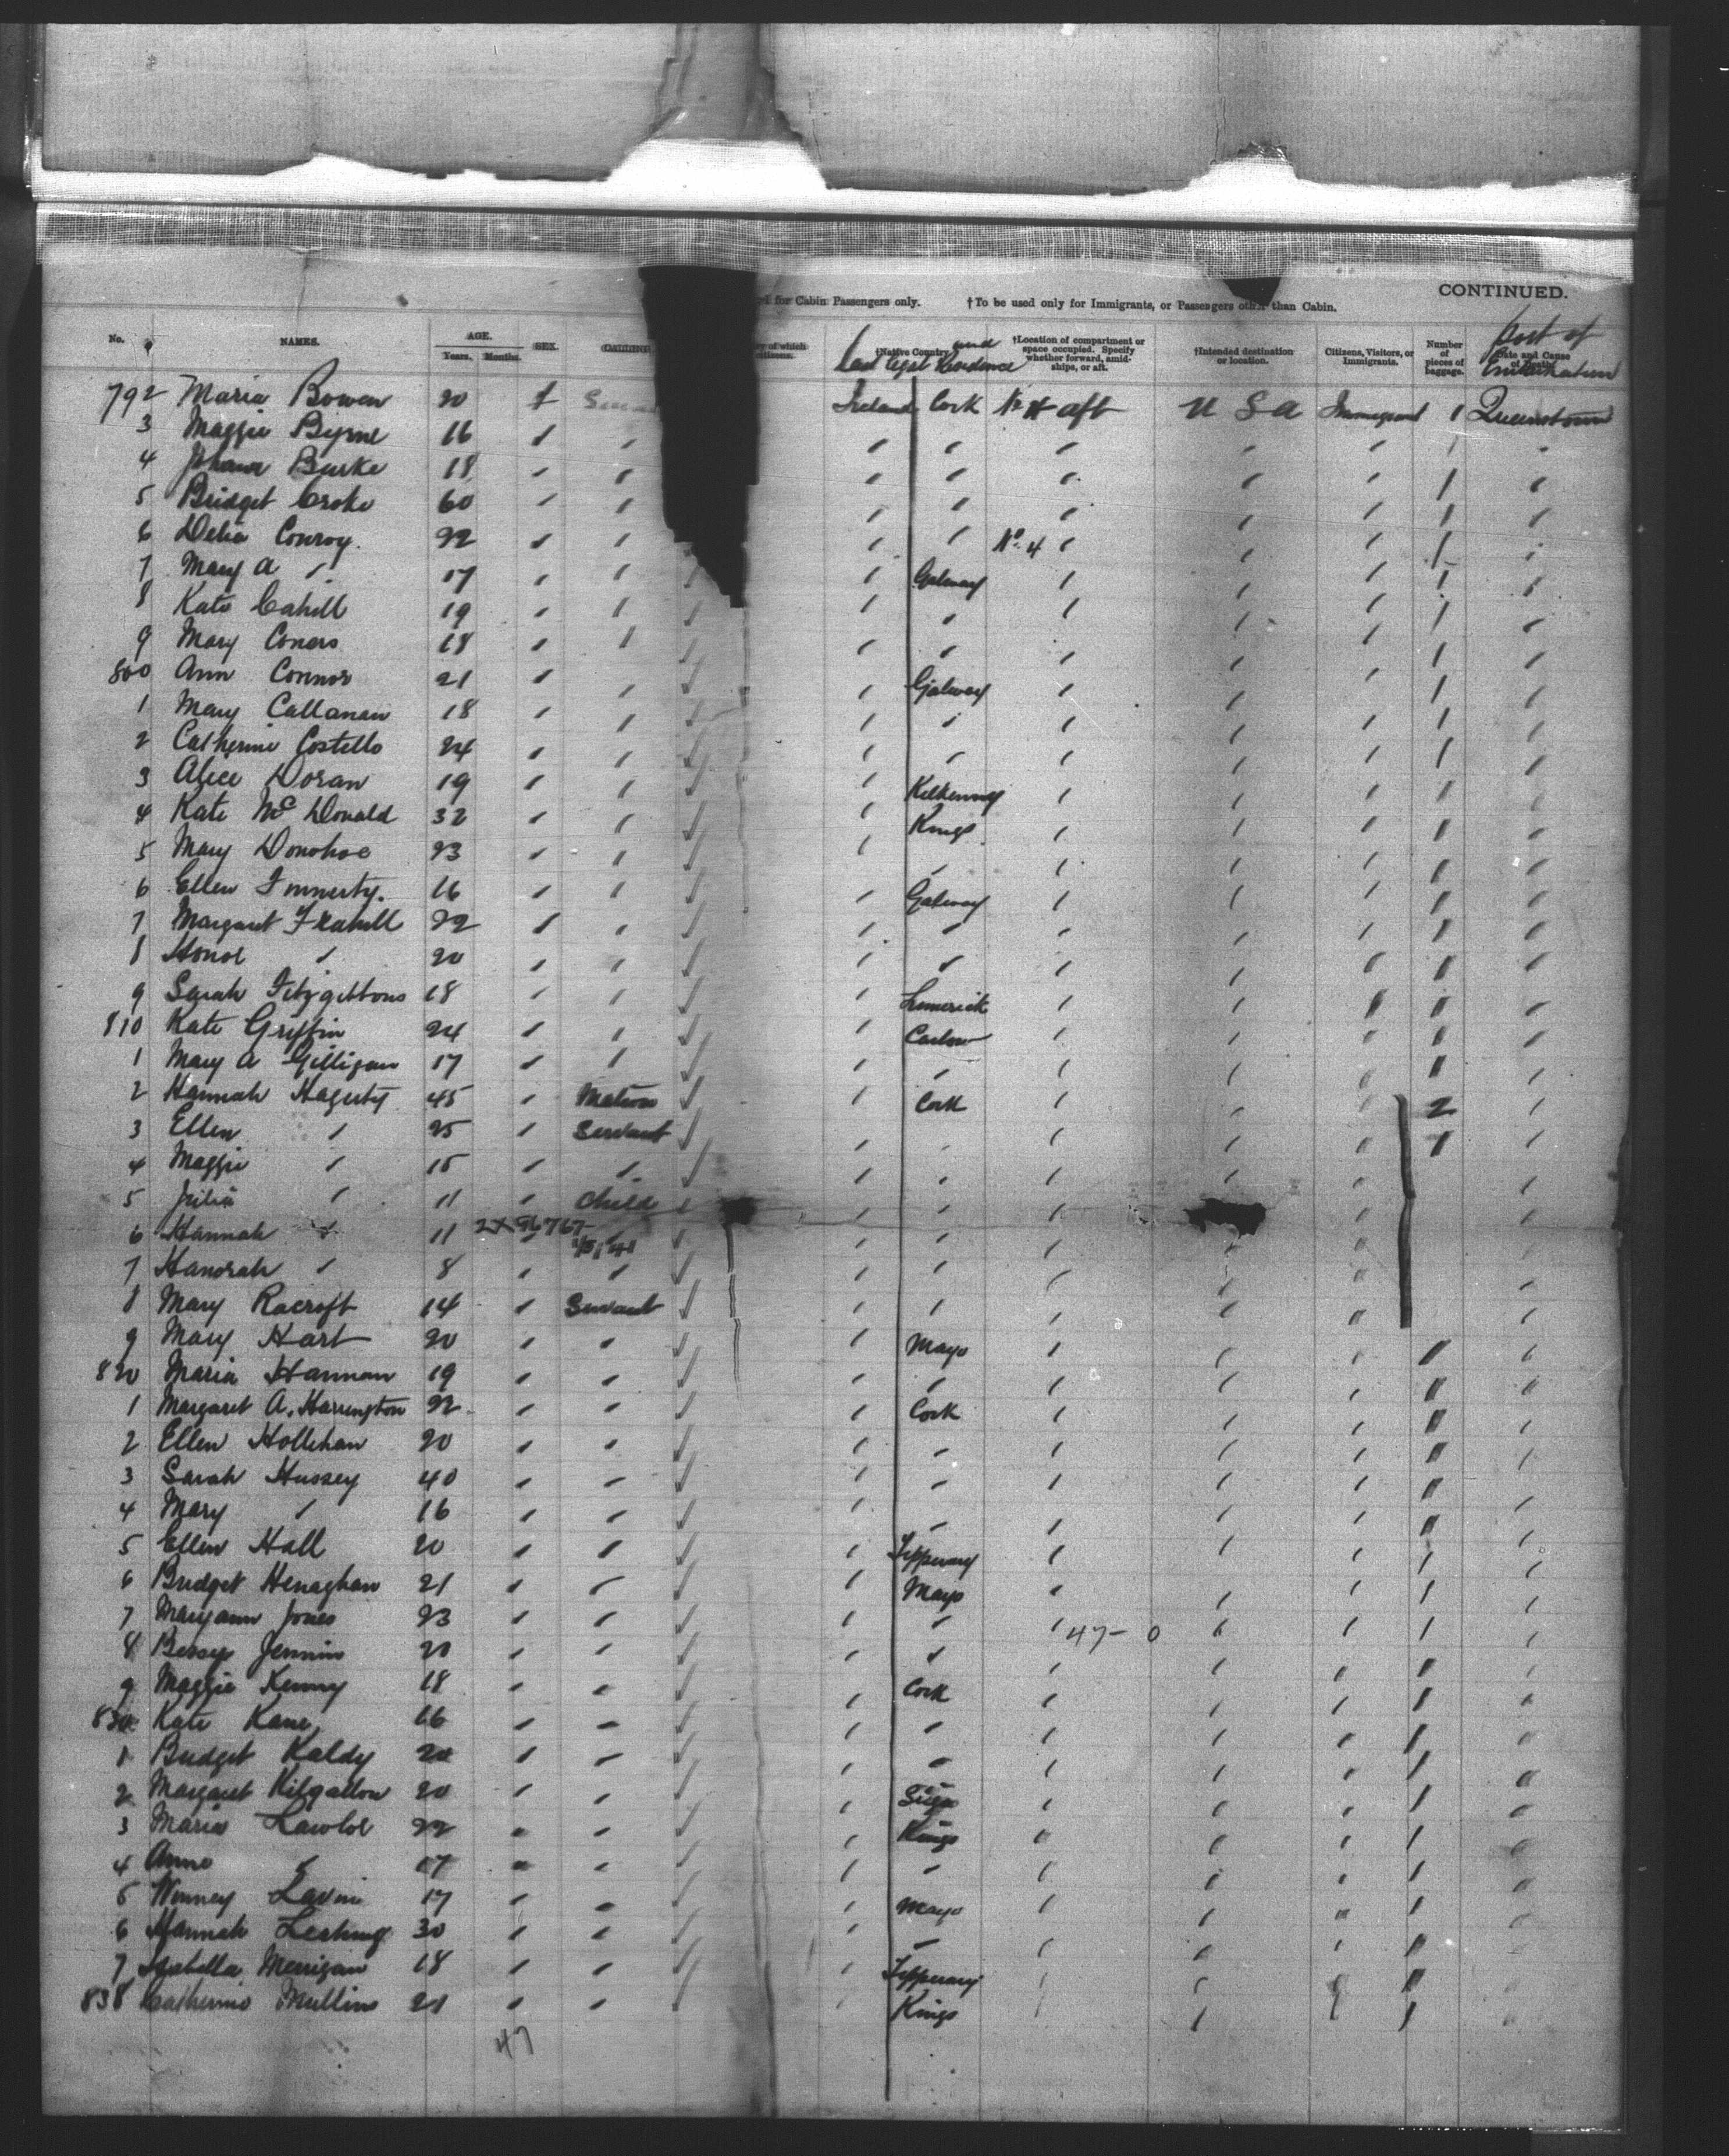 CONTINUED.
for Cabin Passengers only. †To be used only for Immigrants, or Passengers other than Cabin.
No. NAMES. AGE. Years. Months. SEX. CALLING of which citizens. †Native Country and Last legal Residence †Location of compartment or space occupied. Specify whether forward, amidships, or aft. †Intended destination or location. Citizens, Visitors, or Immigrants. Number of pieces of baggage. Date and Cause Port of Embarkation
792 Maria Bowen 20 f Ireland Cork aft U S A Immigrant 1 Queenstown
3 Maggie Byrne 16 " " " " " " " 1 "
4 Burke 18 " " " " " " " 1 "
5 Bridget Croke 60 " " " " " " " 1 "
6 Delia Conroy. 22 " " " " No. 4 " " " 1 "
7 Mary A " 17 " " " Galway " " " 1 "
8 Kate Cahill 19 " " " " " " " 1 "
9 Mary Coners 18 " " " " " " " 1 "
800 Ann Connor 21 " " " Galway " " " 1 "
1 Mary Callanan 18 " " " " " " " 1 "
2 Catherine Costello 24 " " " " " " " 1 "
3 Alice Doran 19 " " " Kilkenny " " " " "
4 Kate McDonald 32 " " " Kings " " " " "
5 Mary Donohoe 23 " " " " " " " " "
6 Ellen Finnerty. 16 " " " Galway " " " " "
7 Margaret Frahill 22 " " " " " " " " "
8 Honor " 20 " " " " " " " " "
9 Sarah Fitzgibbons 18 " " " Limerick " " " " "
810 Kate Griffin 24 " " " Carlow " " " " "
1 Mary A Gilligan 17 " " " " " " " " "
2 Hannah Hagerty 45 " Matron " Cork " " " 2 "
3 Ellen " 25 " Servant " " " " " 1 "
4 Maggie " 15 " " " " " " " "
5 Julia " 11 " Child " " " " " "
6 Hannah " 11 2X 96767 " " " " " " "
7 Hanorah " 8 " " " " " " " "
8 Mary Racroft 14 " Servant " " " " " "
9 Mary Hart 20 " " " Mayo " " " " "
820 Maria Hannan 19 " " " " " " " " "
1 Margaret A. Harrington 22 " " " Cork " " " " "
2 Ellen Hollihan 20 " " " " " " " " "
3 Sarah Hussey 40 " " " " " " " " "
4 Mary " 16 " " " " " " " " "
5 Ellen Hall 20 " " " Tipperary " " " 1 "
6 Bridget Henaghan 21 " " " Mayo " " " 1 "
7 Maryann Jones 23 " " " " " 47- 0 " " 1 "
8 Bessy Jennins 20 " " " " " " " " "
9 Maggie Kenny 18 " " " Cork " " " 1 "
830 Kate Kane 16 " " " " " " " 1 "
1 Bridget Kaldy 20 " " " " " " " 1 "
2 Margaret Kilgallon 20 " " " Sligo " " " 1 "
3 Maria Lawlor 22 " " " Kings " " " 1 "
4 Anne " 17 " " " " " " " 1 "
5 Winney Lavin 17 " " " Mayo " " " 1 "
6 Hannah 30 " " " " " " " " "
7 Isabella Merrigan 18 " " " Tipperary " " " " "
838 Catherine Mullins 21 " " " Kings " " " 1
47